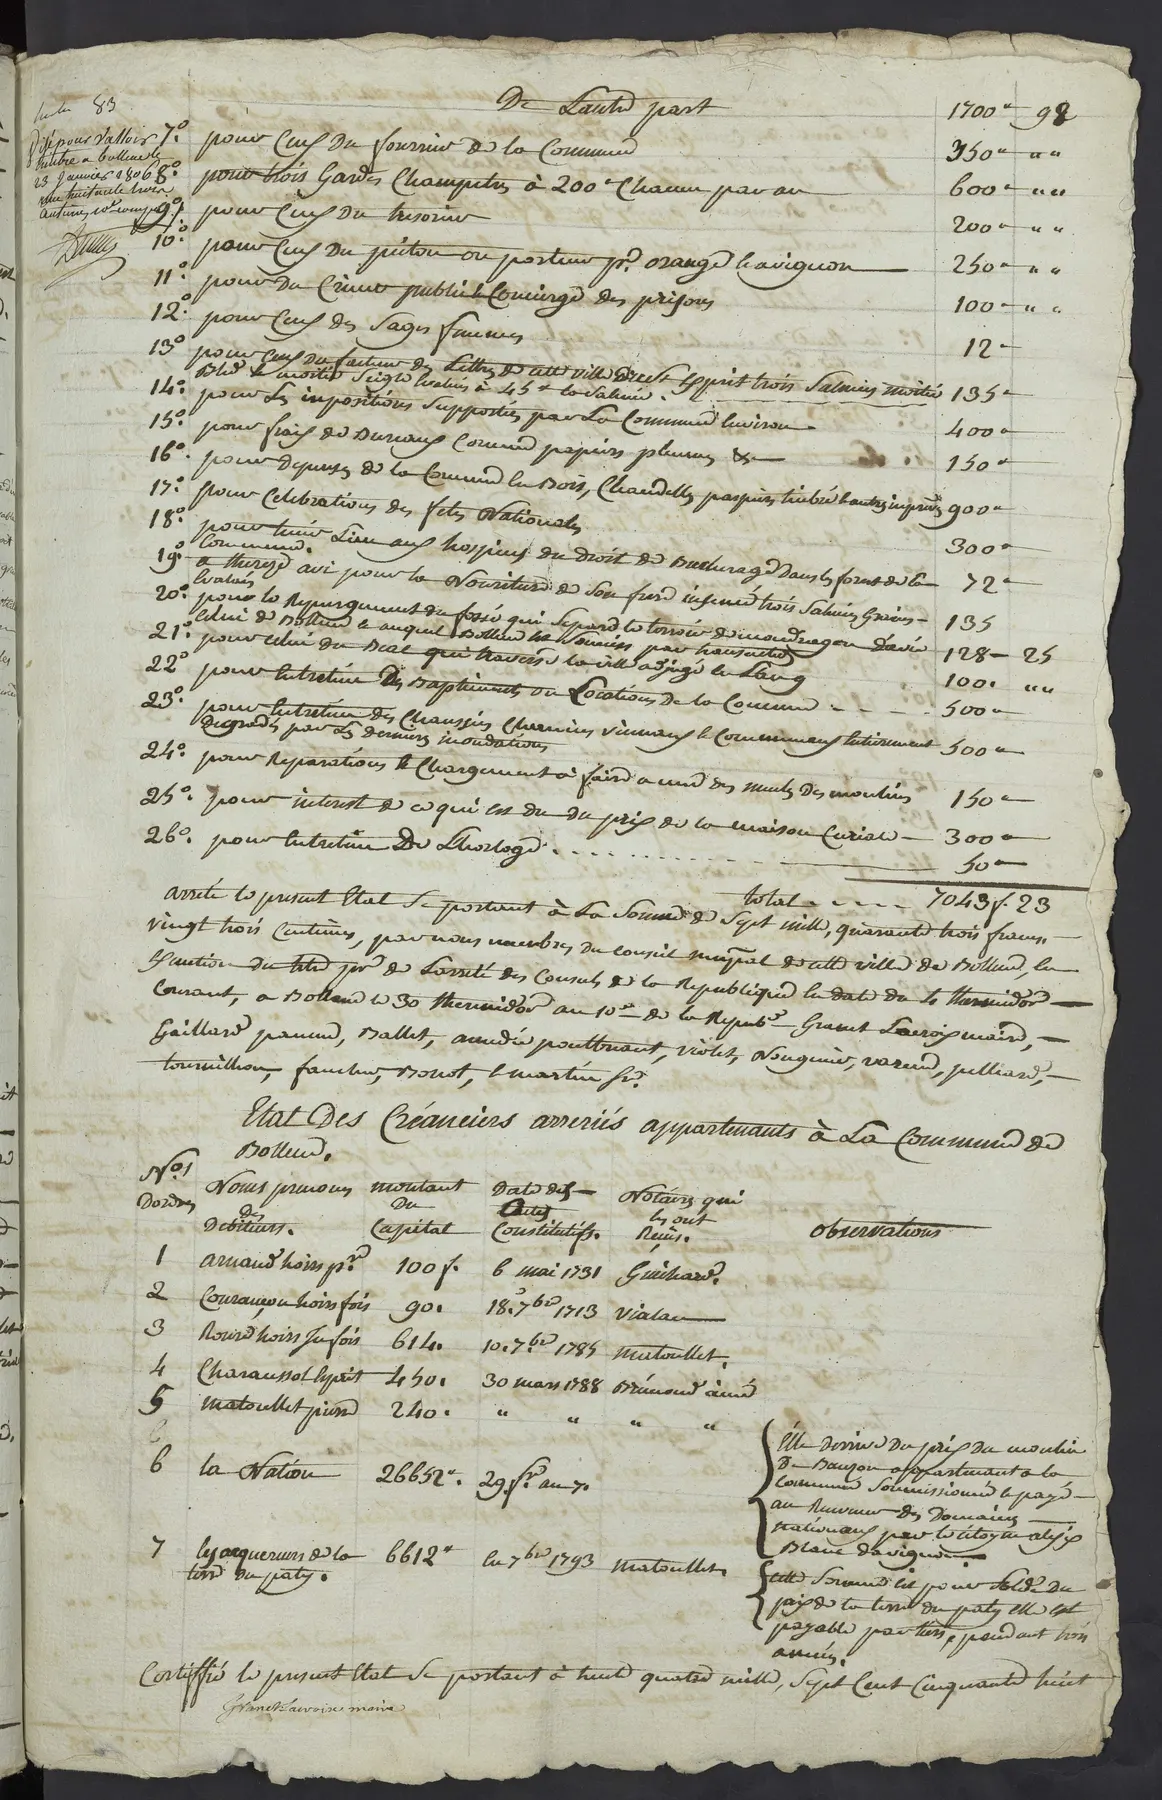 De Lautre part 1700" 98
7°. pour Ceux du fourrier de la Commune 350" " "
8°. pour trois Gardes Champetres à 200" Chacun par an 600" " "
9°. pour Ceux du tresorier 200" " "
10°. pour Ceux du pieton ou porteur pr. orange & avignon 250" " "
11°. pour du Crieur public & Concierge des prisons 100" " "
12°. pour Ceux des Sages femmes 12"
13° pour Ceux du facteur des Lettres de cette ville Du St Esprit trois Salmées moitié 135"
Bled & moitié Seigle Evalués à 45" la Salmée.
14°. pour Les impositions Supportées par La Commune Environ 400"
15°. pour frais de Bureaux Comme papiers plumes &c 150"
16°. pour depenses de la Commune En Bois, Chandelles, papiers timbré & autres imprimés 900"
17°. pour Celebrations des fetes Nationales 300"
18°. pour tenir Lieu aux hospices du Droit de Bucherage Dans les forets de la 72"
Commune.
19°. a therese avi pour la Nouriture de Son frere insensé trois Salmées Grains 135
Evalués
20°. pour le Repurgement du fossé qui Separe le terroir de mondragon d'avec 128 - 25
Celui de Bollene & auquel Bollene
21°. pour celui du Beal qui traverse la ville adjugé en L'an 9 100. " "
22° pour Entretien Des Baptiments ou Locations de la Commune 500"
23°. pour Entretien des Chaussées Chemins vicinaux & Communaux Entierement 500"
Degradés par Les dernieres inondations
24°. pour Reparations & Chargement à faire a une des meules des moulins 150"
25°. pour interest de ce qui est du du prix de la maison Curiale 300"
26°. pour Entretien De L'horloge 50"
total 7043 f. 23
arrété le present Etat Se portant à La Somme de Sept mille, quarante trois francs
vingt trois Centimes, par nous membres du conseil municipal de cette ville de Bollene, En
Execution du titre pr. de L'arreté des Consuls de la Republique En date du 4 thermidor
Courant, a Bollene le 30 thermidor an 10e de la Repub.e Granet Lacroix maire,
Gaillard, Ballet, amedée, violet, Nouguier,
tourvillon, faucher, Borrot, & martin Sr.
Etat Des Créanciers arreriés appartenants à La Commune de
Bollene.
Nos. Noms prenoms montant Date des Notaires qui
Dordres des Du Actes les ont
Debiteurs. Capital Constitutifs. Reçus. observations
1 arnaud hoirs pre. 100 f. 6 mai 1731 Guihard.
2 Courançon hoirs fois 90. 18. 7bre 1713 vialan
3 Rouvé hoirs 614. 10. 7bre 1785 matoullet.
4 Charaussol Esprit 450. 30 mars 1788 Brémond ainé
5 matoullet pierre 240. " " " "
6 la Nation 26652" 29. f.r an 7. Elle Derive Du prix Du moulin
De Bauzon appartenant a la
Commune Soumissionné & payé
au Receveur des Domaines
nationaux par le citoyen alexis
Blanc d'avignon.
7 les acquereurs de la 6612" En 7bre 1793 matoullet. Cette Somme Est pour Solde Du
terre du paty. prix de la terre du paty elle est
payable par tiers, pendant trois
années.
Certiffié le present Etat Se portant à trente quatre mille, Sept Cent Cinquante huit
Granet Lacroix maire